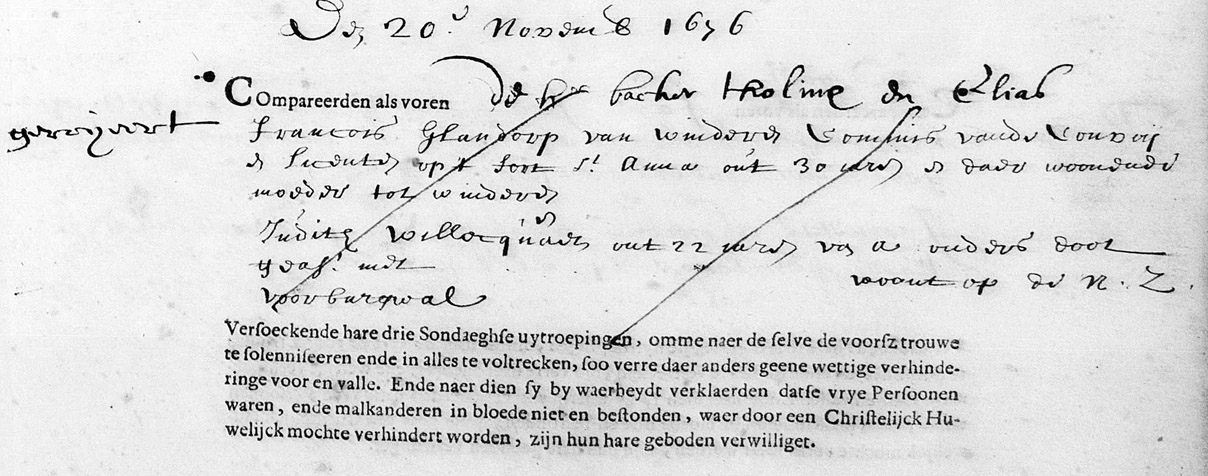 Den 20.e Novemb 1676
COmpareerden als voren de hr backer tholinx en Elias
gerroyeert
Francois Glandorp van winderen Commis vande Convoij
en licenten opt fort St. Anna out 30 jaren en daer woonende
moeder tot winderen
Judith Willocquaer out 22 jaren van a ouders doot
geast. met
woont op de N. Z.
voorburgwal
Versoeckende hare drie Sondaeghse uytroepingen, omme naer de selve de voorsz trouwe
te solenniseeren ende in alles te voltrecken, soo verre daer anders geene wettige verhinde-
ringe voor en valle. Ende naer dien sy by waerheydt verklaerden datse vrye Persoonen
waren, ende malkanderen in bloede niet en bestonden, waer door een Christelijck Hu-
welijck mochte verhindert worden, zijn hun hare geboden verwilliget.